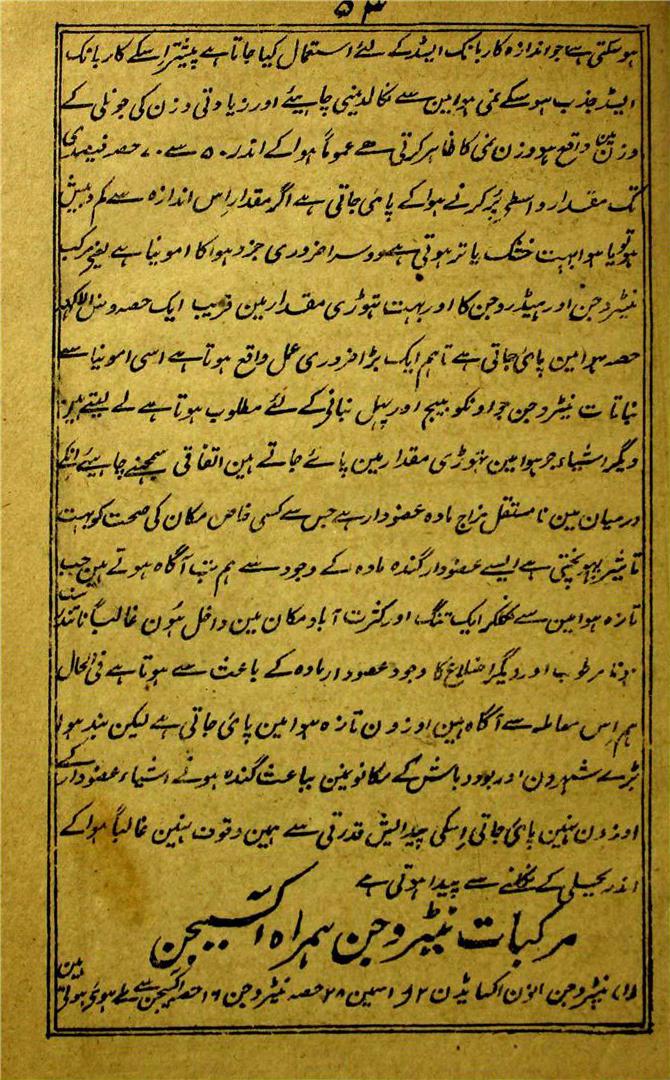 ۵۳
ہوسکتی ہے جو اندازہ کاربانک ایسڈ کے لئے استعمال کیا جاتا ہے پیشتر اسکے کاربانک
ایسڈ جذب ہوسکے نمی ہوا مین سے نکالدینی چاہیئے اور زیادتی وزن کی جو نلی کے
وزن مین واقع ہو وزن نمی کا ظاہر کرتی ہے عموماً ہوا کے اندر ۵۰ سے ۷۰ حصہ فیصدی
تک مقدار واسطے پُر کرنے ہوا کے پائی جاتی ہے اگر مقدار اِس اندازہ سے کم و بیش
ہو تو یا ہوا بہت خشک یا تر ہوتی ہے دوسرا ضروری جزو ہوا کا امونیا ہے یعنے مرکب
نیٹروجن اور ہیڈروجن کا اور بہت تہوڑی مقدار مین قریب ایک حصہ دس لاکھ
حصہ ہوا مین پائی جاتی ہے تاہم ایک بڑا ضروری عمل واقع ہوتا ہے اسی امونیا سے
نباتات نیٹروجن جو اونکو بیج اور پہل بنانے کے لئے مطلوب ہوتا ہے لے لیتے ہین
دیگر اشیاء جو ہوا مین تہوڑی مقدار مین پائے جاتے ہین اتفاقی سمجہنے چاہیئے انکے
درمیان مین نا مستقل مزاج مادہ عضودار ہے جس سے کسی خاص مکان کی صحت کو بہت
تاثیر پہونچتی ہے ایسے عضودار گندہ مادہ کے وجود سے ہم تب آگاہ ہوتے ہین جب
تازہ ہوا مین سے نکلکر ایک تنگ اور کثرت آباد مکان مین داخل ہُون غالباً
مرطوب اور دیگر اضلاع کا وجود عضودار مادہ کے باعث سے ہوتا ہے فی الحال
ہم اِس معاملہ سے آگاہ ہین اوزون تازہ ہوا مین پائی جاتی ہے لیکن بند ہوا
بڑے شہرون اور بود باش کے مکانونمین بباعث گندہ ہونے اشیاء عضودار کے
اوزون نہین پائی جاتی اِسکی پیدایش قدرتی سے ہمین وقوف نہین غالباً ہوا کے
اندر بجلی کے نکلنے سے پیدا ہوتی ہے
مرکبات نیٹروجن ہمراہ آکسیجن
(۱) نیٹروجن اکسایڈ ن۲ و اسمین ۲۸ حصہ نیٹروجن ۱۶ حصہ آکسیجن سے ملے ہوئے ہوتی ہین